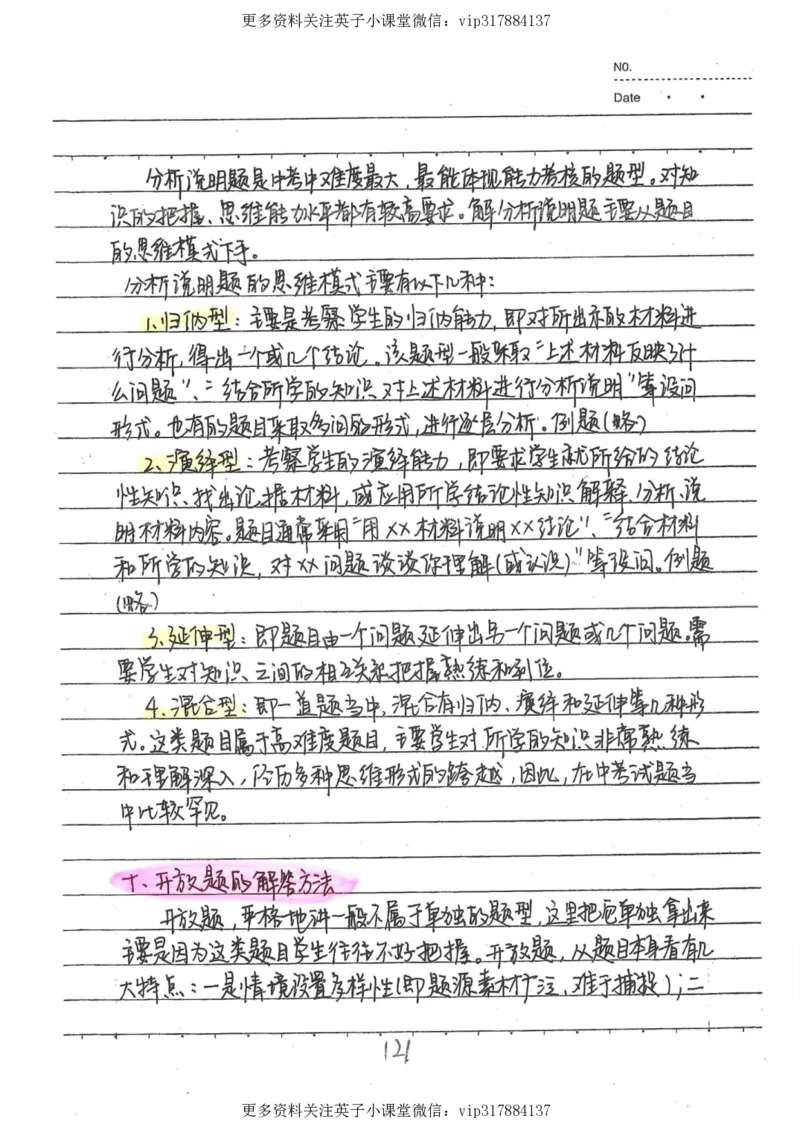 更多资料关注英子小课堂微信：vip317884137
NO.
Date
分析说明题是中考中难度最大，最能体现能力考核的题型。对知
识的把握、思维能力水平都有较高要求。解分析说明题主要从题目
的思维模式下手。
分析说明题的思维模式主要有以下几种：
1.归纳型：主要是考察学生的归纳能力，即对所出示的材料进
行分析，得出一个或几个结论。该题型一般采取“上述材料反映了什
么问题”、“结合所学的知识对上述材料进行分析说明”等设问
形式。也有的题目采取多问的形式，进行逐层分析。例题(略)
2、演绎型：考察学生的演绎能力，即要求学生就所给的结论
性知识、找出论据材料，或应用所学结论性知识解释、分析、说
明材料内容。题目通常采用“用××材料说明××结论”、“结合材料
和所学的知识，对××问题谈谈你理解(或认识)”等设问。例题
(略)
3.延伸型：即题目由一个问题延伸出另一个问题或几个问题。需
要学生对知识之间的相互关系把握熟练和到位。
4.混合型：即一道题当中，混合有归纳、演绎和延伸等几种形
式。这类题目属于高难度题目，主要学生对所学的知识非常熟练
和理解深入，经历多种思维形式的跨越，因此，在中考试题当
中比较罕见。
十、开放题的解答方法
开放题，严格地讲一般不属于单独的题型，这里把它单独拿出来
主要是因为这类题目学生往往不好把握。开放题，从题目本身看有几
大特点：一是情境设置多样性(即题源素材广泛，难于捕捉)；二
121
更多资料关注英子小课堂微信：vip317884137